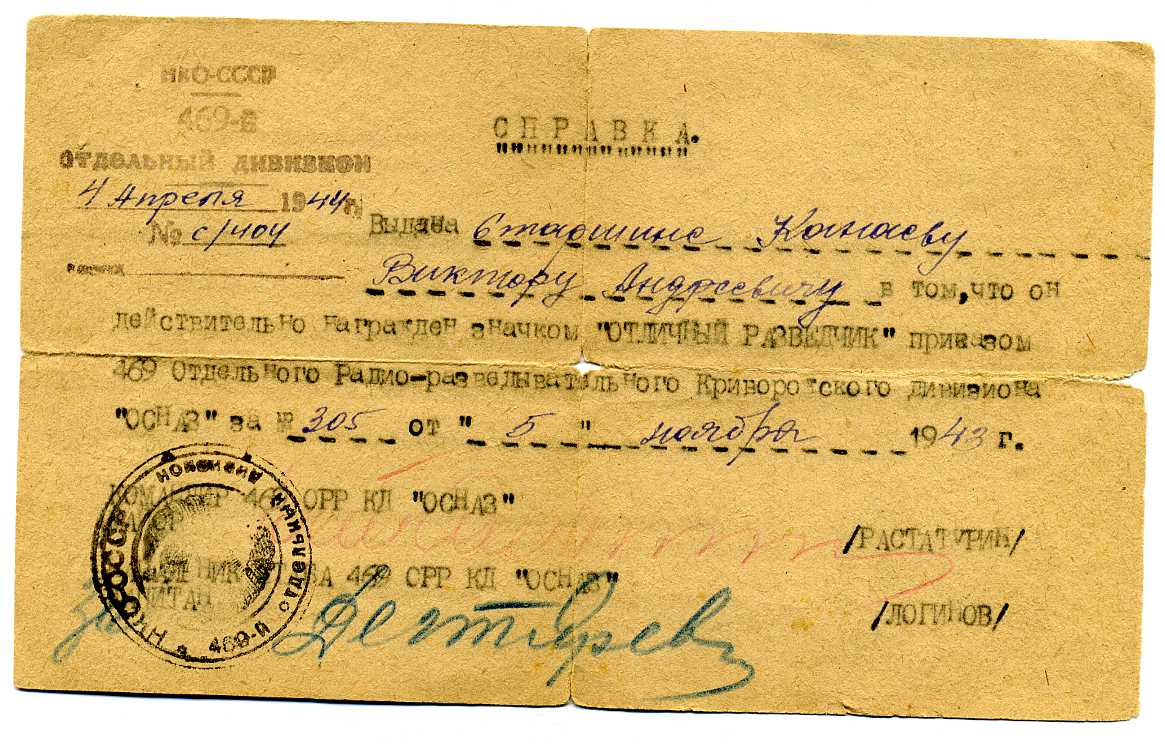 НКО-СССР
469-й
ОТДЕЛЬНЫЙ ДИВИЗИОН
4 Апреля 1944 г.
№ с/404
СПРАВКА.
Выдана Старшине Канаеву
Виктору Андреевичу в том, что он
действительно награжден значком "ОТЛИЧНЫЙ РАЗВЕДЧИК" приказом
469 Отдельного Радио-разведывательного Криворожского дивизиона
"ОСНАЗ" за № 305 от "5" ноября 1943 г.
КОМАНДИР 469 ОРР КД "ОСНАЗ"
/РАСТАТУРИН/
469 ОРР КД "ОСНАЗ"
/ЛОГИНОВ/
НКО-СССР 469-й отдельный дивизион